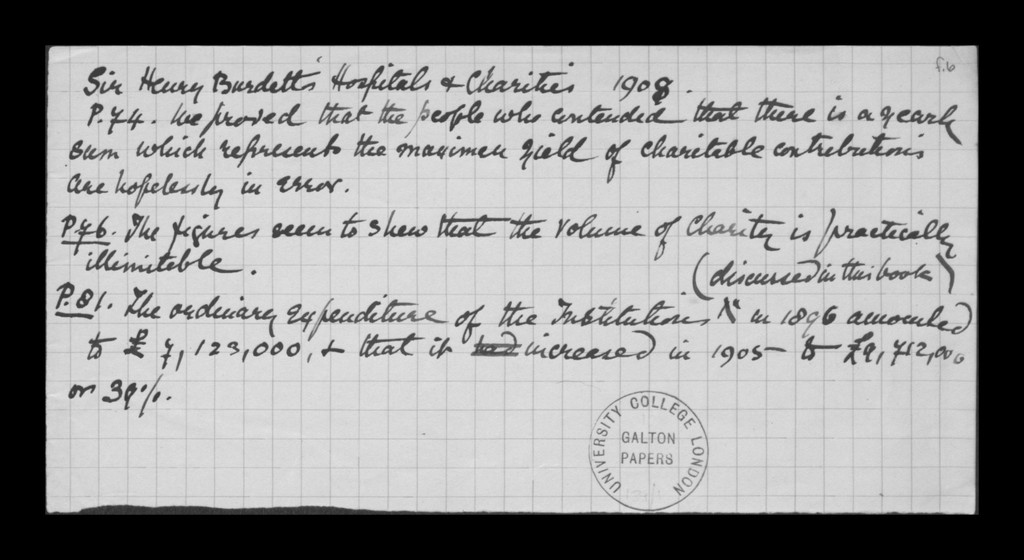 f.6
Sir Henry Burdett's Hospitals & Charities 1908.
P.74. We proved that the people who contended that there is a yearly
sum which represents the maximum yield of charitable contributions
are hopelessly in error.
P.76. The figures seem to shew that the volume of Charity is practically
illimitable.
(discussed in this book)
P.81. The ordinary expenditure of the Institutions ^ in 1896 amounted
to £ 7,123,000, & that it had increased in 1905 to £9,712,000
or 39%.
UNIVERSITY COLLEGE LONDON
GALTON
PAPERS